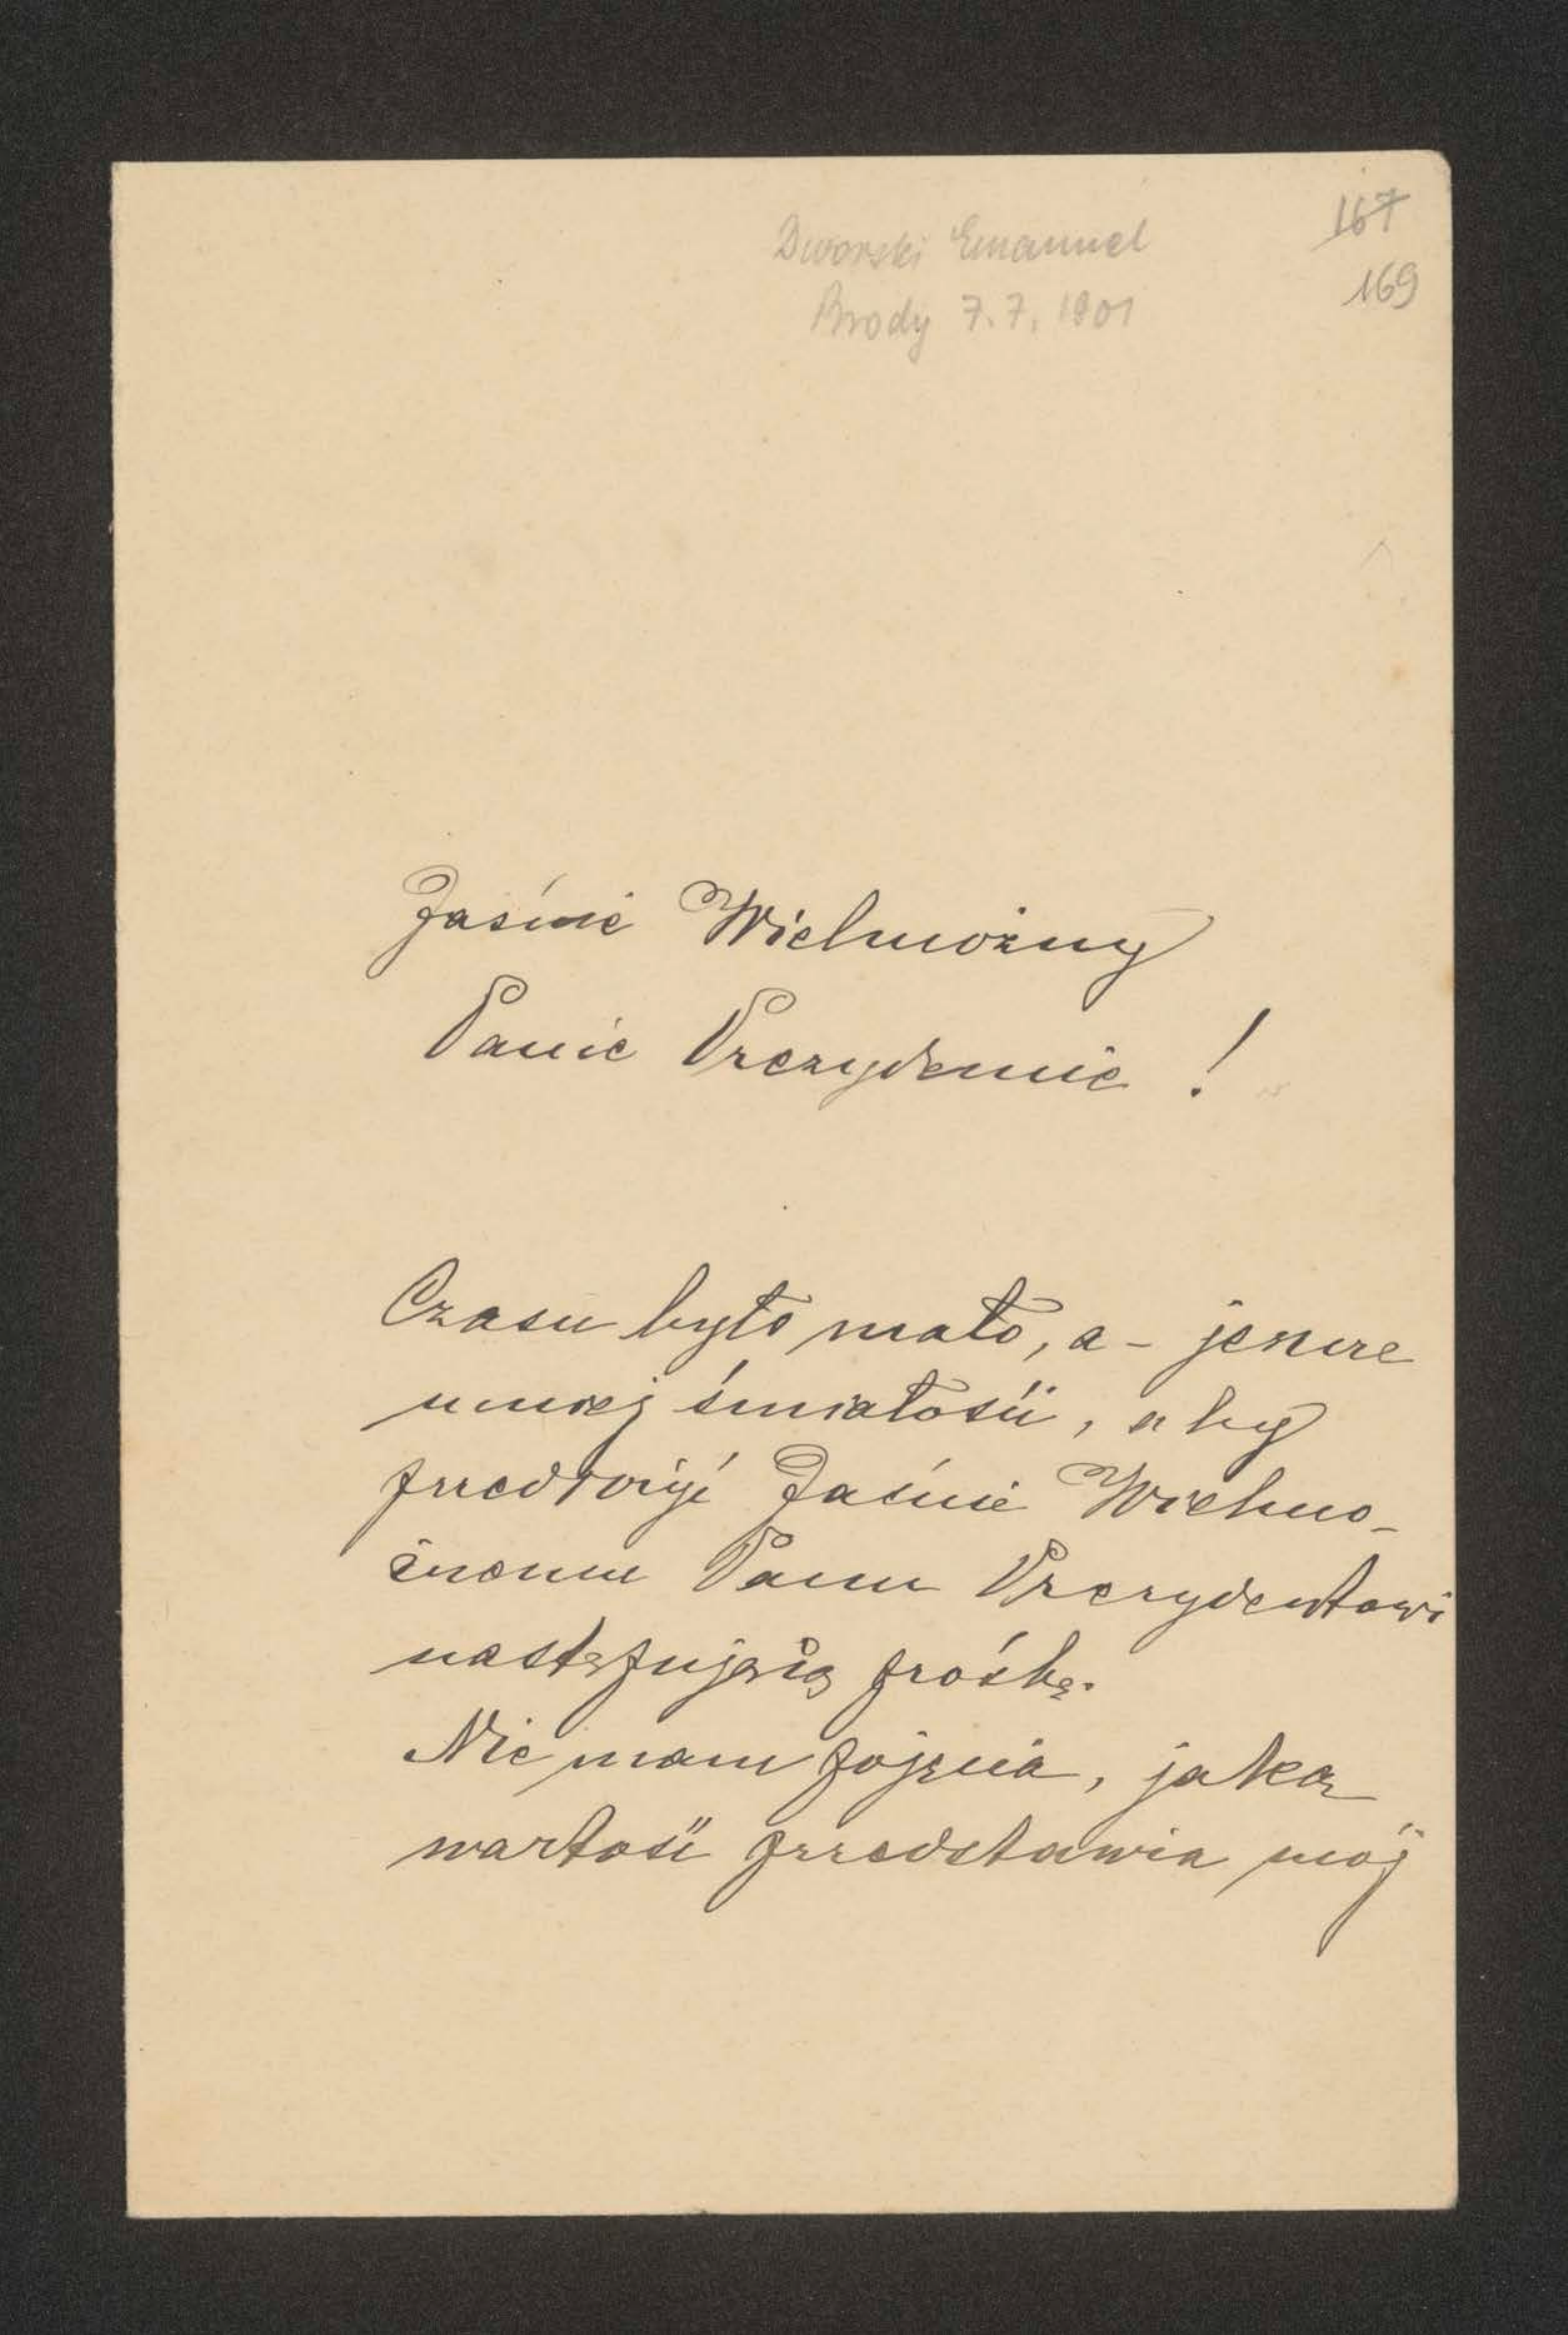 Dworski Emanuel
Brody 7.7.1901
167
169
Jaśnie Wielmożny
Panie Prezydencie !
Czasu było mało, a - jeszcze
mniej śmiałości, aby
przedłożyć Jaśnie Wielmo-
żnemu Panu Prezydentowi
następującą prośbę.
Nie mam pojęcia, jaką
wartość przedstawia mój